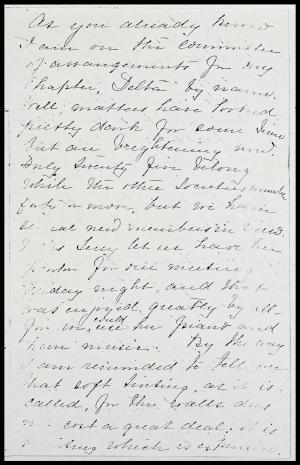 As you already know
I am on the committee
of arrangements for my
Chapter, Delta by name.
Well, matters have looked
pretty dark for some time
but are brightening now.
Only twenty five belong
while the other Societies number
forty or more, but we have
several new members in view.
Miss Terry let us have her
parlor for our meeting
Friday night, and that
was enjoyed greatly by all-
for we could use her piano and
have music. By the way
I am reminded to tell you
that soft tinting, as it is
called, for the walls does
not cost a great deal; it is
which is expensive.